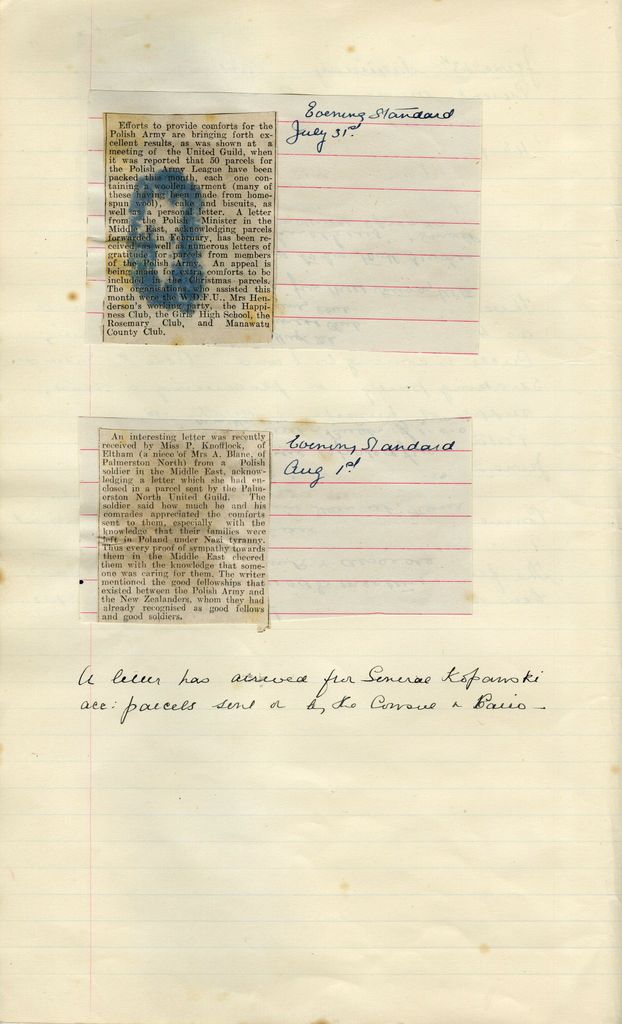 Efforts to provide comforts for the
Polish Army are bringing forth ex-
cellent results, as was shown at a
meeting of the United Guild, when
it was reported that 50 parcels for
the Polish Army League have been
packed this month, each one con-
taining a woollen garment (many of
these being been made from home-
spun wool), cake and biscuits, as
well a personal letter. A letter
from the Polish Minister in the
Middle East, acknowledging parcels
forwarded in February, has been re-
ceived as well as numerous letters of
gratitude for parcels from members
of the Polish Army. An appeal is
being comforts to be
included in the Christmas parcels.
The organisations who assisted this
month were the W.D.F.U., Mrs Hen-
derson's working party, the Happi-
ness Club, the Girls' High School, the
Rosemary Club, and Manawatu
County Club.
Evening Standard
July 31st
An interesting letter was recently
received by Miss P. Knofflock, of
Eltham (a niece of Mrs A. Blane, of
Palmerston North) from a Polish
soldier in the Middle East, acknow-
ledging a letter which she had en-
closed in a parcel sent by the Palm-
erston North United Guild. The
soldier said how much he and his
comrades appreciated the comforts
sent to them, especially with the
knowledge that their families were
left in Poland under Nazi tyranny.
Thus every proof of sympathy towards
them in the Middle East cheered
them with the knowledge that some-
one was caring for them. The writer
mentioned the good fellowships that
existed between the Polish Army and
the New Zealanders, whom they had
already recognised as good fellows
and good soldiers.
Evening Standard
Aug 1st
A letter has arrived from General Kopanski
acc: parcels sent by the Consul in Cairo —